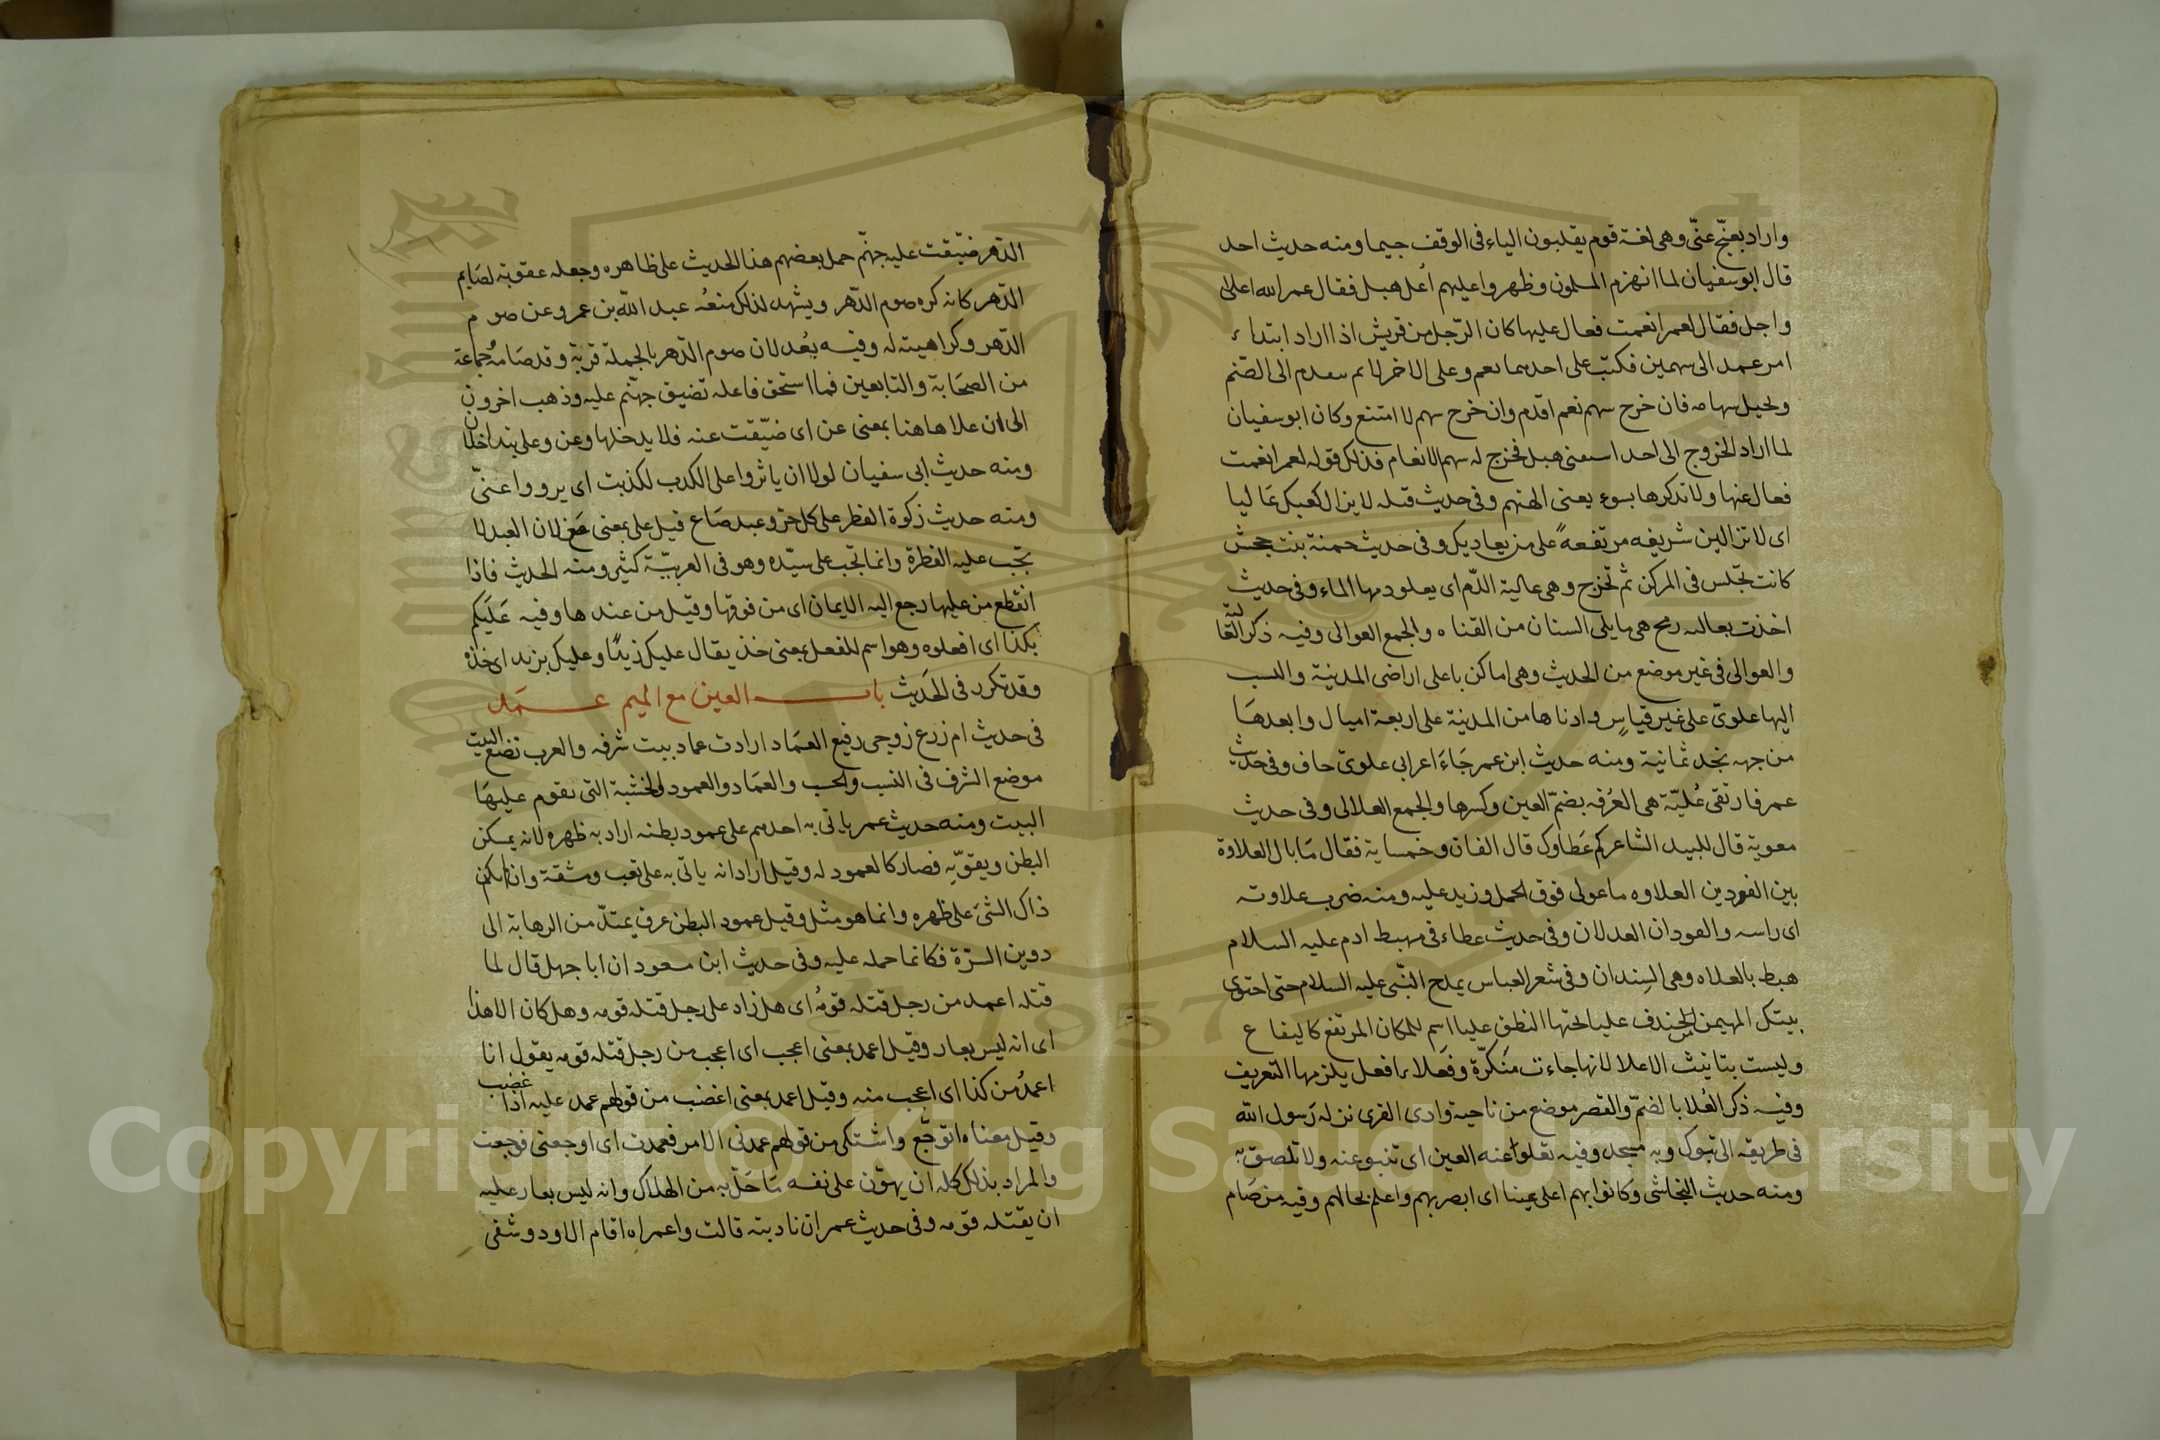 واراد بعنّج عنّى وهى لغة قوم يقلبون الياء فى الوقف جيما ومنه حديث احد
قال ابو سفيان لما انهزم المسلمون وظهروا عليهم اُعل هبل فقال عمر الله اعلى
واجل فقال لعمر انعمت فعال عليها كان الرّجل من قريش اذا اراد ابتداء
امر عمد الى سهمين فكتب على احدهما نعم وعلى الاخر لا ثم يتقدم الى الصّنم
ويحيل سهامه فان خرج سهم نعم اقدم وان خرج سهم لا امتنع وكان ابو سفيان
لما اراد الخروج الى احد استفتى هبل فخرج له سهم الانعام فذلك قوله لعمر انعمت
فعال عنها ولا تذكرها بسوء يعنى الهتهم وفى حديث قيله لا يزال كعبك عَاليا
اى لا تزالين شريفه مرتفعةً على من يعاديك وفى حديث حمنة بنت جحش
كانت تجّلس فى المركن ثم تخرج وهى عالية الدّم اى يعلو دمها الماء وفى حديث
اخذت بعاليه رمح هى ما يلى السنان من القناه والجمع العوالى وفيه ذكر العَالية
والعوالى فى غير موضع من الحديث وهى اماكن باعلى اراضى المدينة والنسب
اليها علوىّ على غير قياسٍ وادناها من المدينة على اربعة اميال وابعدهَا
من جهه نجد ثمانية ومنه حديث ابن عمر جَاءَ اعرابى علوىّ جاف وفى حديث
عمر فارتقى عُليّة هى الغُرفه بضمّ العين وكسرها والجمع العلالى وفى حديث
معوية قال للبيد الشاعر كم عَطاوك قال الفان وخمساية فقال مَا بال العلاوة
بين الفودين العلاوه ما عولى فوق الحمل وزيد عليه ومنه ضرب علاوته
اى راسه والفودان العدلان وفى حديث عطاء فى مهبط ادم عليه السلام
هبط بالعلاه وهى السِندان وفى شعر العباس يمدح النّبى عليه السلام حتى احتوى
بيتك المهيمن من خندف علياء تحتها النطق علياء اسم للمكان المرتفع كاليفاع
وليست بتانيث الاعلا لانها جاءت منَكرّة وفَعلاء افعل يلزمها التعريف
وفيه ذكر العُلا بالضمّ والقصر موضع من ناحية وادى القرى نزله رَسول الله
فى طريقه الى تبوك وبه مسجد وفيه تعلوا عنه العين اى تنبو عنه ولا تلصق به
ومنه حديث النجاشى وكانوا بهم اعلى عينا اى ابصر بهم واعلم بحالهم وفيه من صَام
الدّهر ضيّقت عليه جهنّم حمل بعضهم هذا الحديث على ظاهره وجعله عقوبة لصَايم
الدّهر كانه كره صوم الدّهر ويشهد لذلك منعُه عبد الله بن عمرو عن صوم
الدّهر وكراهيته له وفيه بعُد لان صوم الدّهر بالجملة قربة وقد صَامهُ جماعة
من الصحَابة والتابعين فما استحق فاعله تضيق جهنّم عليه وذهب اخرون
الى ان علا هاهنا بمعنى عن اى ضيّقت عنه فلا يدخلها وعن وعلى يتداخلان
ومنه حديث ابى سفيان لولا ان ياثروا على الكذب لكذبت اى يرووا عنىّ
ومنه حديث زكوة الفطر على كل حرّ وعبد صَاع قيل على بمعنى عَن لان العبد لا
تجّب عليه الفطرة وانما تجّب على سيّده وهو فى العربيّة كثير ومنه الحديث فاذا
انقطع من عليها رجع اليه الايمان اى من فوقها وقيل من عندها وفيه عَلَيكم
بكذا اى افعلوه وهو اسم للفعل بمعنى خذ يقال عليك زيدًا وعليك بزيد اى خذه
وقد تكرر فى الحَديث باب العين مع الميم عَمَد
فى حديث ام زرع زوجى رفيع العمَاد ارادت عماد بيت شرفه والعرب تضع البيت
موضع الشرف فى النسب والحسب والعمَاد والعمود الخشبة التى تقوم عليهَا
البيت ومنه حديث عمر ياتى به احدهم على عمود بطنه اراد به ظهره لانه يمسك
البطن ويقوّيه فصار كالعمود له وقيل اراد انه ياتى به على تعب ومشقة وان لم يكن
ذاك الشئ على ظهره وانما هو مثل وقيل عمود البطن عرق يمتدّ من الرهابة الى
دوين السرّة فكانما حمله عليه وفى حديث ابن مسعود ان ابا جهل قال لما
قتله اعمد من رجل قتله قومُه اى هل زاد على رجل قتله قومه وهل كان الا هذا
اى انه ليس بعار وقيل اعمد بمعنى اعجب اى اعجب من رجل قتله قومه يقول انا
اعمدُ من كذا اى اعجب منه وقيل اعمد بمعنى اغضب من قولهم عمد عليه اذا غضب
وقيل معناه اتوجّع واشتكى من قولهم عمدنى الامر فعمدت اى اوجعنى فوجعت
والمراد بذلك كله ان يهوّن على نفسه مَا حَلّ به من الهلاك وانه ليس بعار عليه
ان يقتله قومه وفى حديث عمر ان نادبته قالت واعمراه اقام الاود وشفى
Copyright © King Saud University
1957